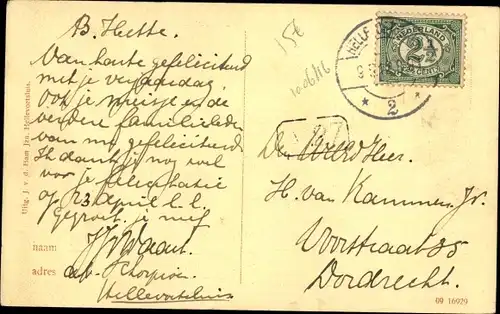 B. Hette.
Van harte gefeliciteerd
met je verjaardag.
Ook je meisje en de
verdere familieleden
van mij gefeliciteerd
Ik dank je nog wel
voor je felicitatie
op 23 april l.l.
Gegroet je mij
a/b. Schorpioen
Hellevoetsluis
naam
adres
Uitg. J. v. d. Ham Jzn. Hellevoetsluis.
15t
10.06/16
HELLE
2
NEDERLAND
2½
CENT
Den WelEd Heer.
H. van Kammen Jr.
Voorstraat 85
Dordrecht.
09 16929